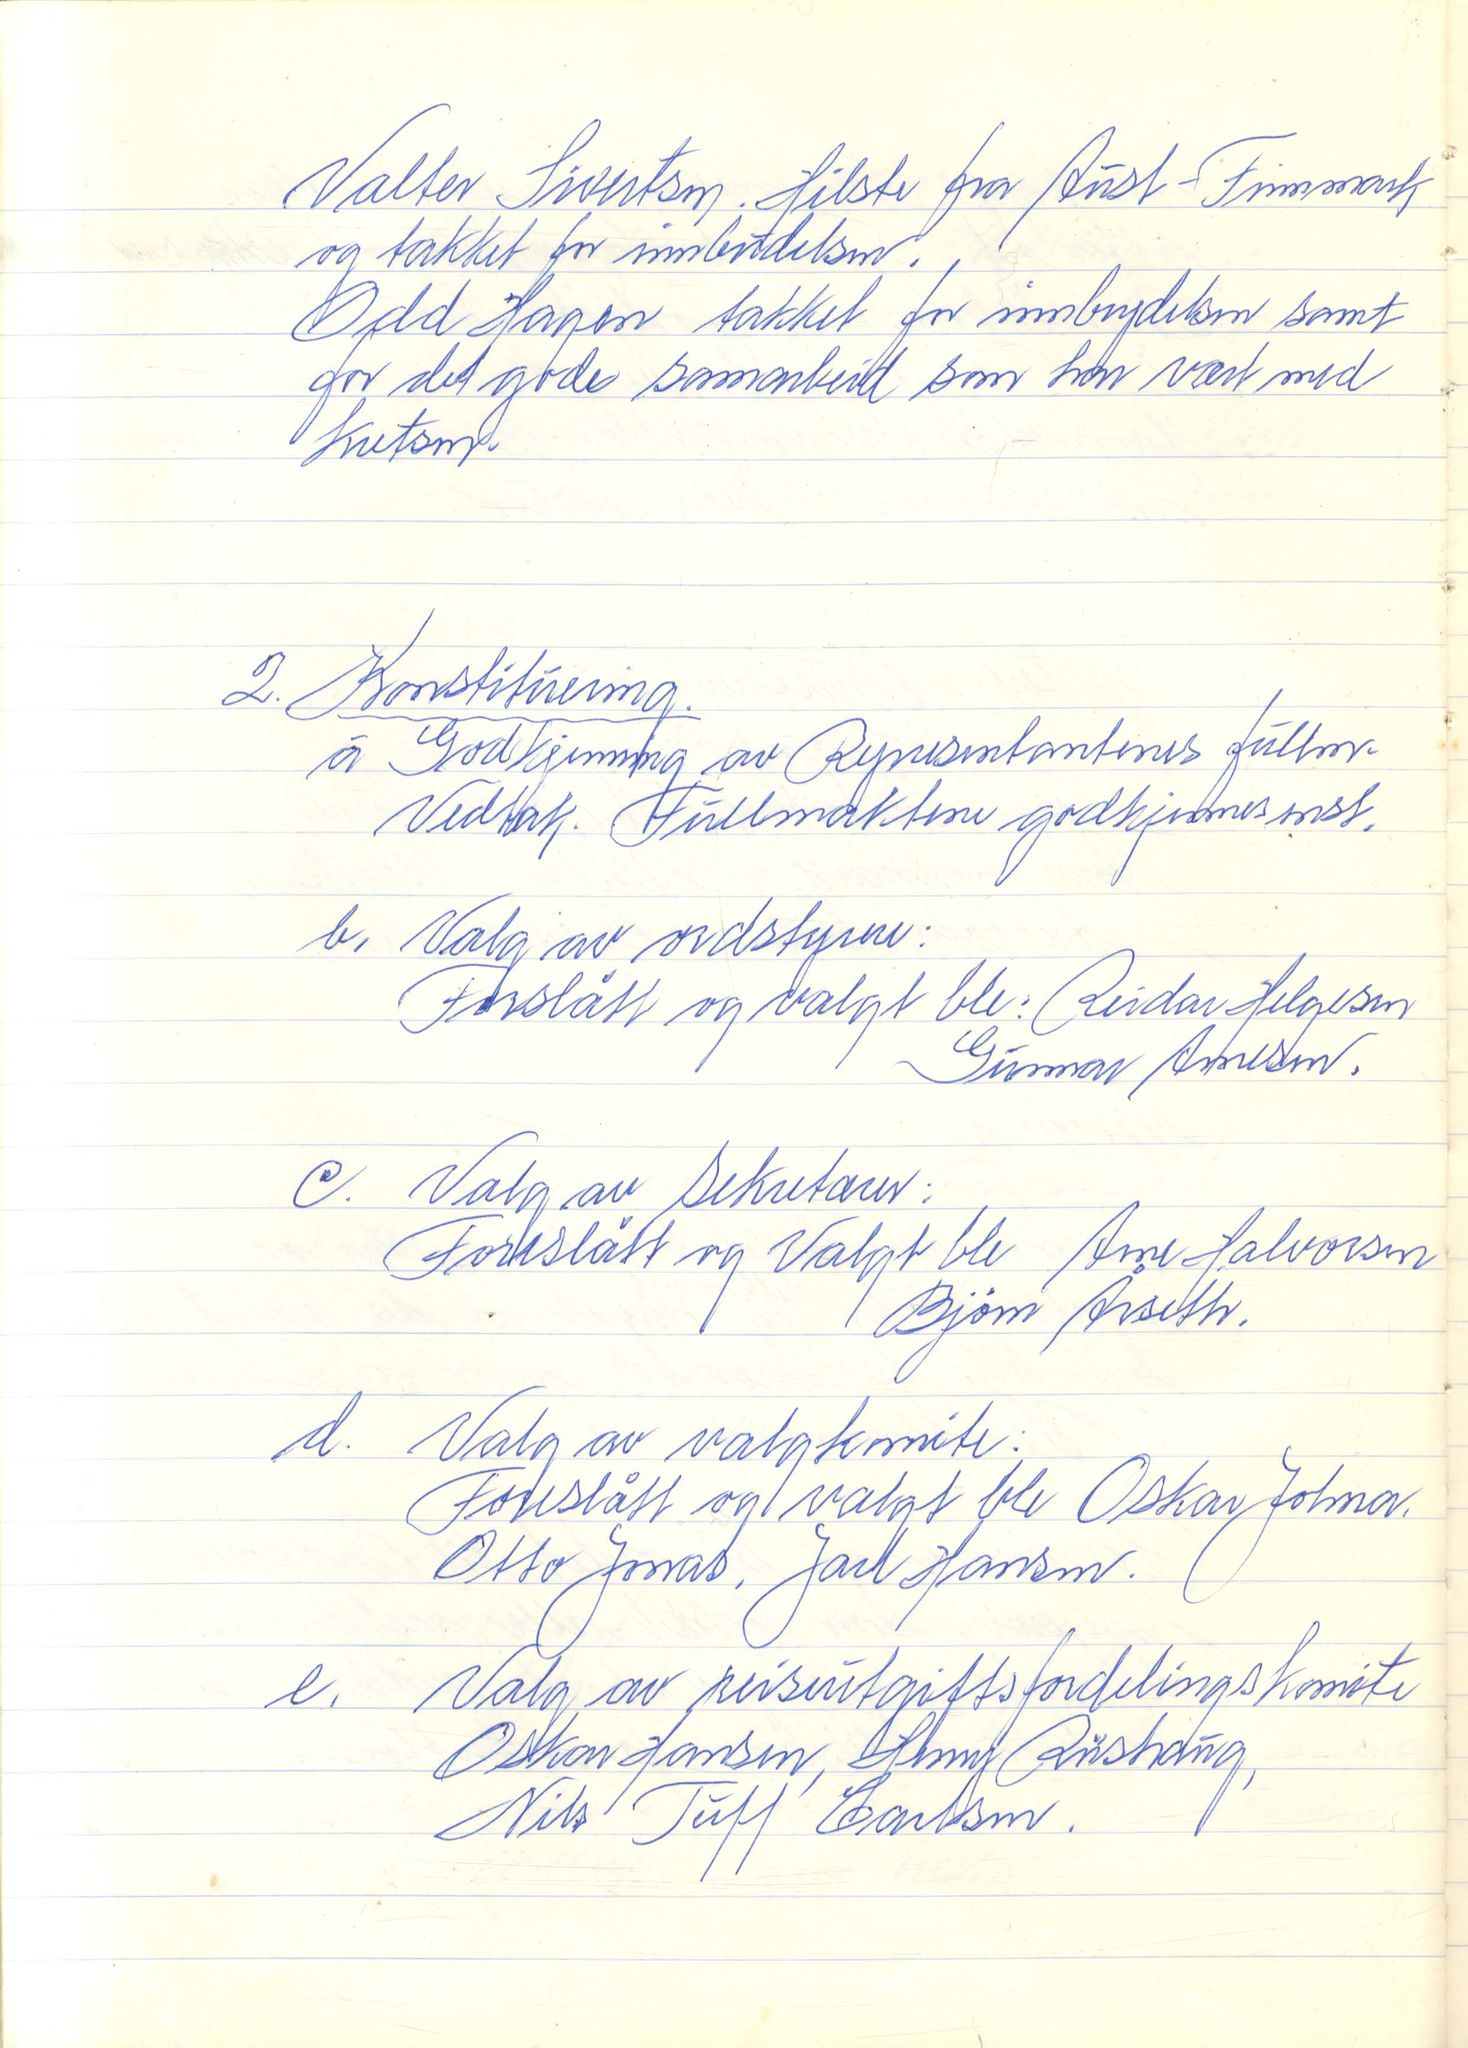 Valter Sivertsen. Hilste fra Aust-Finnmark
og takket for innbydelsen.
Odd Hagen takket for innbydelsen samt
for det gode samarbeid som har vært med
kretsen.
2. Konstituering.
a Godkjenning av Representantenes fullm.
Vedtak. Fullmaktene godkjennes enst.
b. Valg av ordstyrere:
Forslått og valgt ble: Reidar Helgesen
Gunnar Arnesen.
c. Valg av Sekretærer:
Foreslått og Valgt ble Arne Halvorsen
Bjørn Årseth.
d. Valg av valgkomite:
Foreslått og valgt ble Oskar Johnar.
Otto Jonas, Jarl Hansen.
e. Valg av reiseutgiftsfordelingskomite
Oskar Hansen, Henry Rushaug,
Nils Tuff Carlsen.